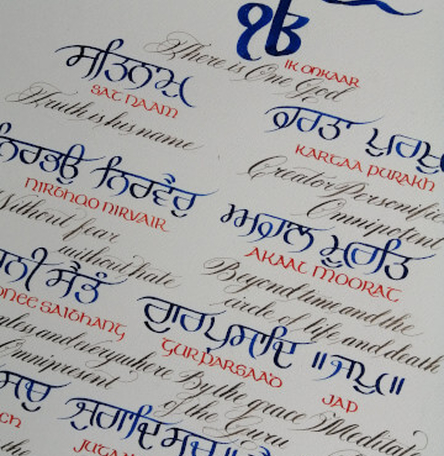 ੴ
IK ONKAAR
There is One God
ਸਤਿਨਾਮੁ
SAT NAAM
Truth is his name
ਕਰਤਾ ਪੁਰਖੁ
KARTAA PURAKH
Creator Personified
Omnipotent
ਨਿਰਭਉ ਨਿਰਵੈਰੁ
NIRBHAO NIRVAIR
Without fear
without hate
ਅਕਾਲ ਮੂਰਤਿ
AKAAL MOORAT
Beyond time and the
circle of life and death
ਸੈਭੰ
SAIBHANG
and everywhere
Omnipresent
ਗੁਰਪ੍ਰਸਾਦਿ
GURPARSAAD
By the grace
of the Guru
॥ ਜਪੁ ॥
JAP
Meditate
ਸਚੁ
ਜੁਗਾਦਿ ਸਚੁ ॥
the